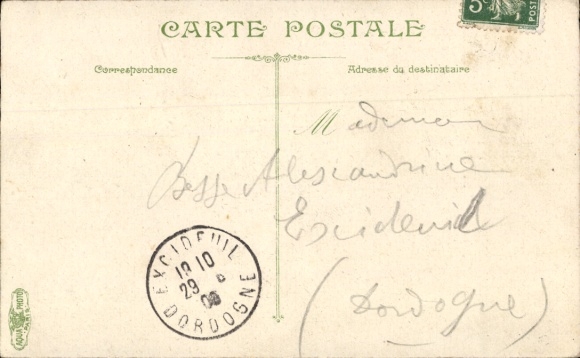 CARTE POSTALE
Correspondance
Adresse du destinataire
Mademoi
Besse Alexandrine
Excideuil
(Dordogne)
EXCIDEUIL
18 10
29
DORDOGNE
5
POST
AQUA PHOTO